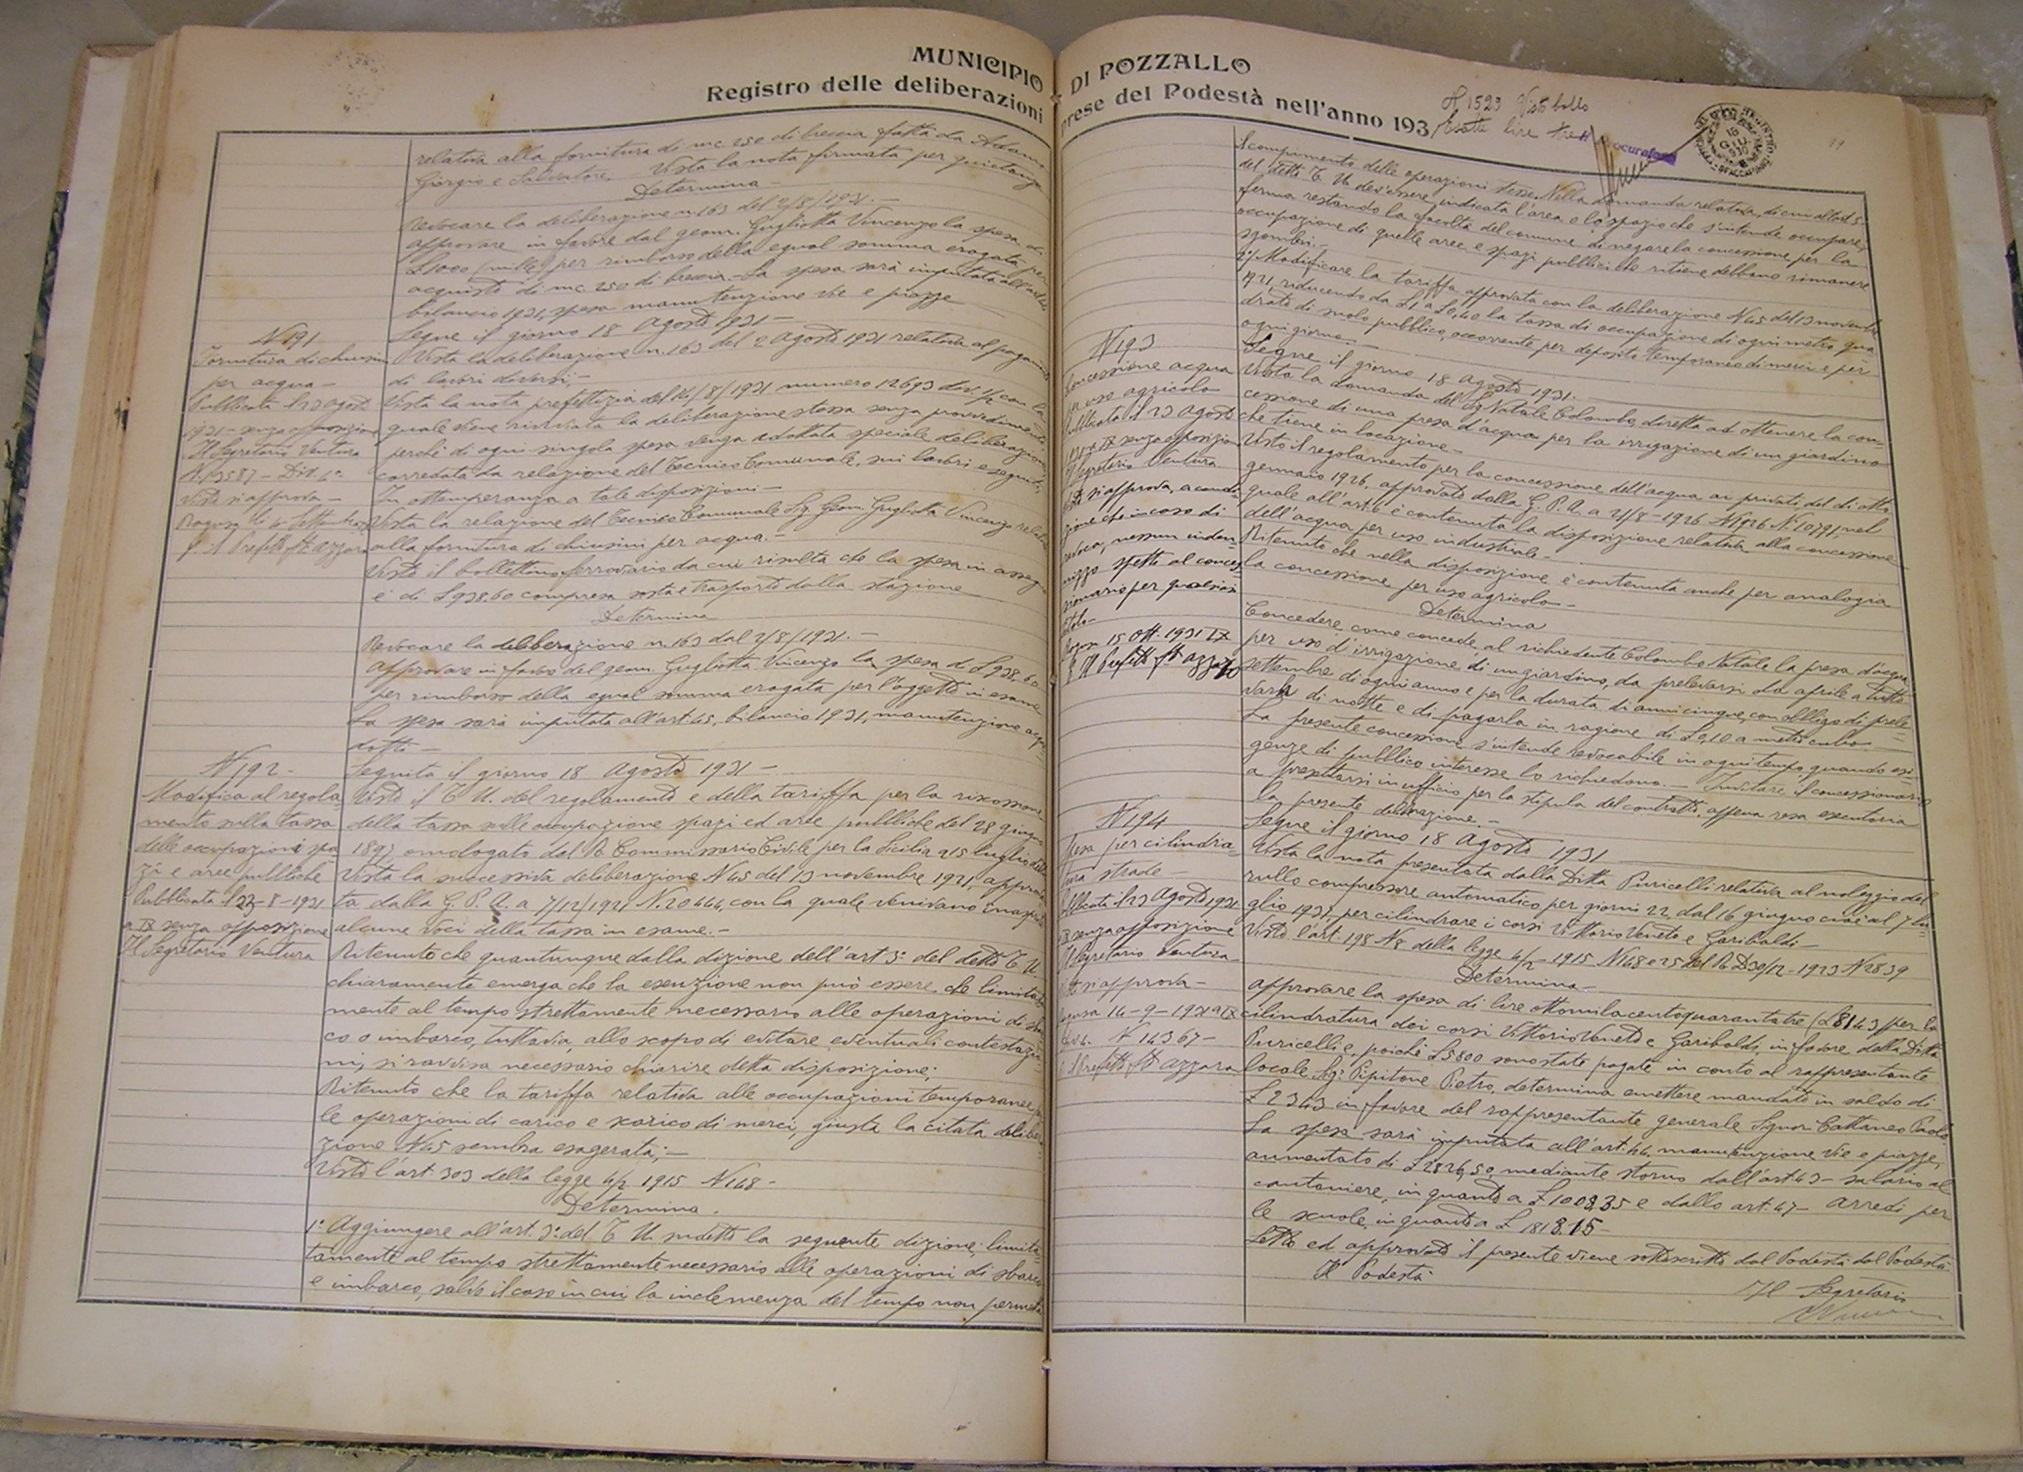 MUNICIPIO DI POZZALLO
Registro delle deliberazioni prese del Podestà nell'anno 193
N 1523 Visto bollo
Esatte lire tre
Procuratore
relativa alla fornitura di mc 250 di breccia fatta da Adamo
Giorgio e Salvatore. Vista la nota firmata per quietanza
Determina
revocare la deliberazione n. 163 del 2/8/1931. -
approvare in favore del geom. Gugliotta Vincenzo la spesa di
L 1000 (mille) per rimborso della egual somma erogata per
acquisto di mc. 250 di breccia - La spesa sarà imputata all'art
bilancio 1931, spesa manutenzione vie e piazze
N 191
Fornitura di chiusini
per acqua -
Pubblicata il 23 agosto
1931 - senza opposizione
Il Segretario Ventura
N. 13587 - Div 4ª
Visto si approva -
Ragusa li 4 Settembre
Segue il giorno 18 Agosto 1931 -
Vista la deliberazione n. 163 del 2 agosto 1931 relativa al pagamento
di lavori diversi; -
Vista la nota prefettizia del 14/8/1931 numero 12693 div. 1/2 con la
quale viene rinviata la deliberazione stessa senza provvedimento
perchè di ogni singola spesa venga adottata speciale deliberazione
corredata da relazione del Tecnico Comunale, sui lavori eseguiti.
In ottemperanza a tale disposizioni -
Vista la relazione del Tecnico Comunale Sg. Geom. Gugliotta Vincenzo relativa
alla fornitura di chiusini per acqua. -
Visto il bollettino ferroviario da cui risulta che la spesa in assegno
è di L 938,60 compresa sosta e trasporto dalla stazione
Determina
Revocare la deliberazione n. 163 del 2/8/1931. -
approvare in favore del geom. Gugliotta Vincenzo la spesa di L 938,60
per rimborso della egual somma erogata per l'oggetto in esame
La spesa sarà imputata all'art. 45, bilancio 1931, manutenzione acque
dotti -
N 192 -
Modifica al regola
mento sulla tassa
delle occupazioni spa
zi e aree pubbliche
Pubblicata il 23-8-1931
a IX senza opposizione
Il Segretario Ventura
Seguita il giorno 18 Agosto 1931 -
Visto il T. U. del regolamento e della tariffa per la riscossione
della tassa sulle occupazione spazi ed aree pubbliche del 28 giugno
1897, omologato dal R. Commissario Civile per la Sicilia a 15 luglio detto
Vista la successiva deliberazione N 45 del 13 novembre 1921, approva
ta dalla G. P. A. a 7/12/1921 N. 20444, con la quale venivano inasprite
alcune voci della tassa in esame. -
Ritenuto che quantunque dalla dizione dell'art 3° del detto T. U.
chiaramente emerga che la esenzione non può essere che limitata
mente al tempo strettamente necessario alle operazioni di sbar
co o imbarco, tuttavia, allo scopo di evitare eventuali contestazio
ni, si ravvisa necessario chiarire detta disposizione;
Ritenuto che la tariffa relativa alle occupazioni temporanee per
le operazioni di carico e scarico di merci, giusta la citata delibera
zione N 45 sembra esagerata; -
Visto l'art 303 della legge 4/2 1915 N 148 -
Determina.
1° Aggiungere all'art. 3° del T. U. sudetto la seguente dizione: limita
tamente al tempo strettamente necessario alle operazioni di sbarco
e imbarco, salvo il caso in cui la inclemenza del tempo non permetta
il compimento delle operazioni stesse. Nella domanda relativa, di cui all'art. 5
del detto T. U. dev'essere indicata l'area e lo spazio che s'intende occupare,
ferma restando la facoltà del comune di negare la concessione per la
occupazione di quelle aree e spazi pubblici che ritiene debbano rimanere
sgombri. -
2° Modificare la tariffa approvata con la deliberazione N 45 del 13 novembre
1921, riducendo da L 1 a L 0,40 la tassa di occupazione di ogni metro qua
drato di suolo pubblico, occorrente per deposito temporaneo di merci e per
ogni giorno. -
N 193
Concessione acqua
per uso agricolo
Pubblicata il 23 agosto
1931 a IX senza opposizione
Il Segretario Ventura
Visto si approva, a condi
zione che in caso di
revoca, nessun inden
nizzo spetti al conces
sionario per qualsiasi
titolo -
Ragusa 15 Ott. 1931 IX
Segue il giorno 18 Agosto 1931. -
Vista la domanda del Sg Natale Colombo, diretta ad ottenere la con-
cessione di una presa d'acqua per la irrigazione di un giardino
che tiene in locazione -
Visto il regolamento per la concessione dell'acqua ai privati del di otto
gennaio 1926, approvato dalla G. P. A. a 21/8 - 1926 N. 10791, nel
quale all'art. 6 è contenuta la disposizione relativa alla concessione
dell'acqua per uso industriale -
Ritenuto che nella disposizione è contenuta anche per analogia
la concessione per uso agricolo -
Determina
Concedere, come concede, al richiedente Colombo Natale la presa d'acqua
per uso d'irrigazione di un giardino, da prelevarsi da aprile a tutto
settembre di ogni anno e per la durata di anni cinque, con obbligo di prele
varla di notte e di pagarla in ragione di L 0,10 a metro cubo
La presente concessione s'intende revocabile in ogni tempo, quando esi
genze di pubblico interesse lo richiedono. - Invitare il concessionario
a presentarsi in ufficio per la stipula del contratto, appena resa esecutoria
la presente deliberazione. -
N 194
Spesa per cilindra-
tura strade -
Pubblicata il 23 Agosto 1931
IX senza opposizione
Il Segretario Ventura
Visto si approva -
Ragusa 14-9-1931 a IX
N 14367 -
Segue il giorno 18 Agosto 1931
Vista la nota presentata dalla Ditta Puricelli relativa al noleggio del
rullo compressore automatico per giorni 22, dal 16 giugno cioè al 7 lu-
glio 1931, per cilindrare i corsi Vittorio Veneto e Garibaldi -
Visto l'art. 198 N 8 della legge 4/2 - 1915 N 148 e 25 del R. D. 30/12 - 1923 N 2839
Determina -
approvare la spesa di lire ottomilacentoquarantatre (L 8143) per la
cilindratura dei corsi Vittorio Veneto e Garibaldi, in favore della Ditta
Puricelli e, poichè L 5800 sono state pagate in conto al rappresentante
locale Sg: Pipitone Pietro, determina emettere mandato in saldo di
L 2343 in favore del rappresentante generale Signor Cattaneo Paolo
La spesa sarà imputata all'art. 44, manutenzione vie e piazze,
aumentato di L 2826,50 mediante storno dall'art 43 - salario al
cantoniere, in quanto a L 1008,35 e dallo art. 47 - arredi per
le scuole, in quanto a L 1818.15 -
Letto ed approvato il presente viene sottoscritto dal Podestà dal Podestà
Il Podestà
Il Segretario